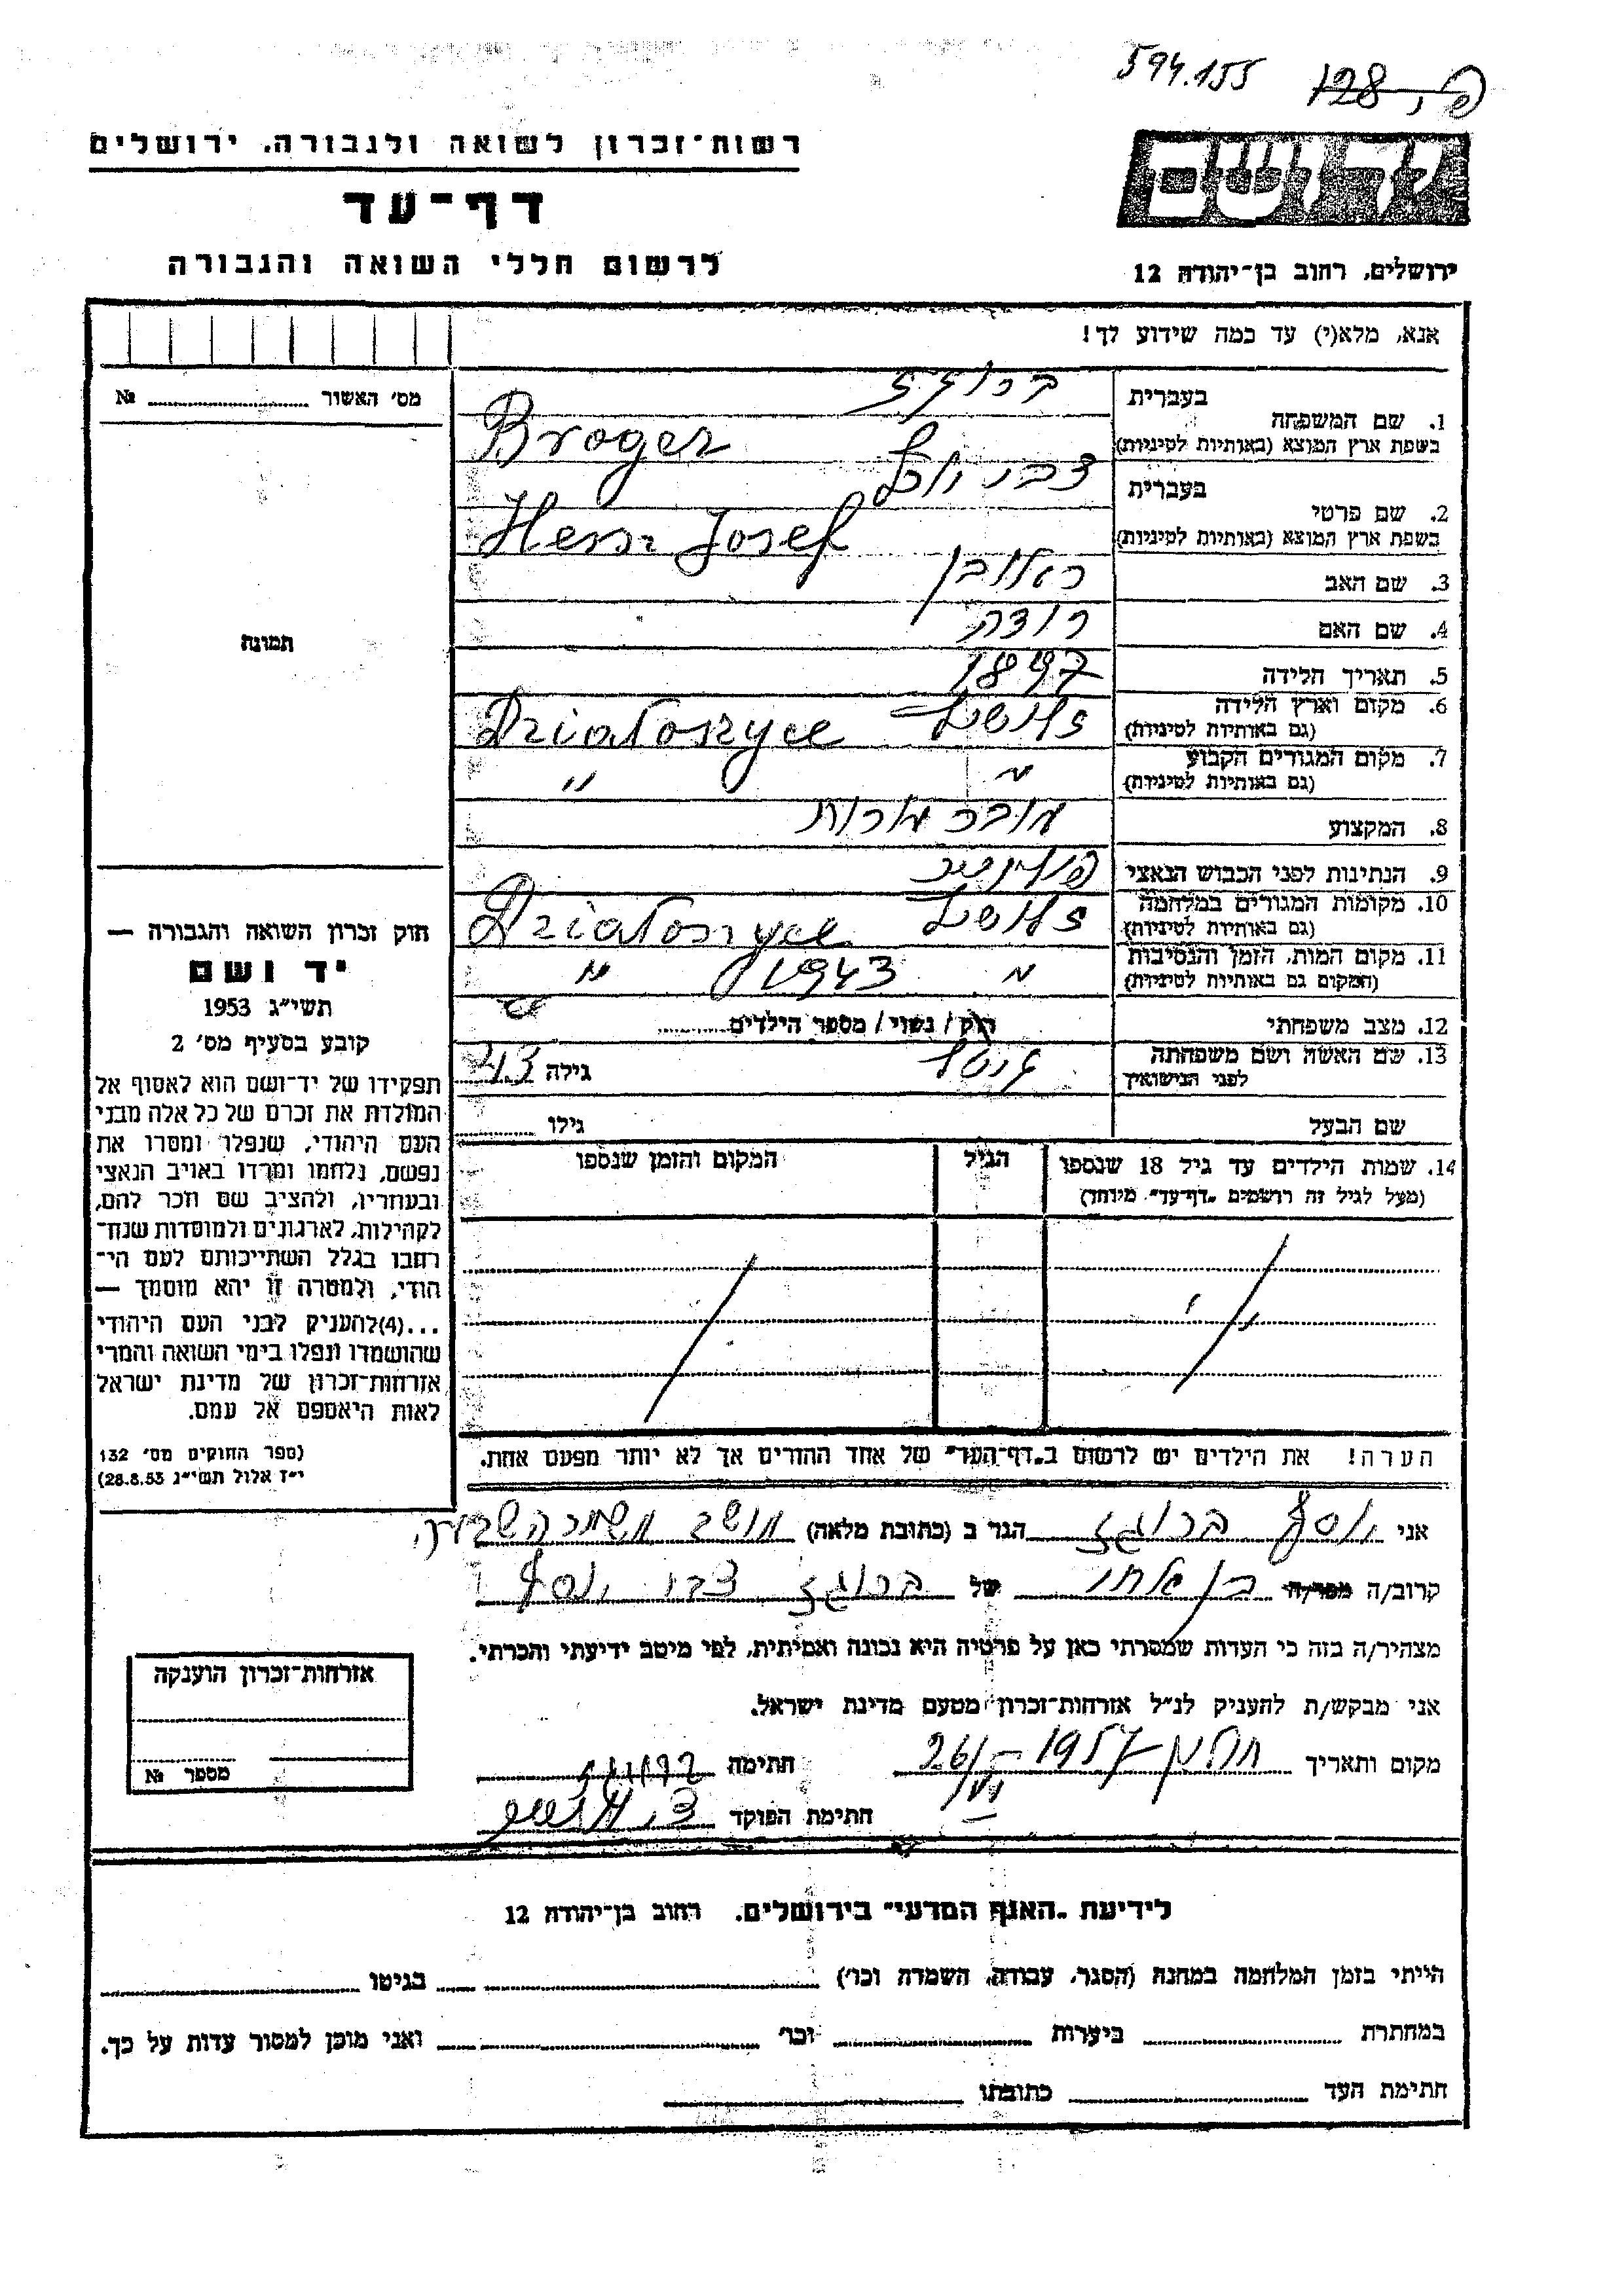 594.155 128
רשות־זכרון לשואה ולגבורה, ירושלים
דף־עד
לרשום חללי השואה והגבורה
יד ושם
ירושלים, רחוב בן־יהודה 12
אנא, מלא(י) עד כמה שידוע לך!
מס׳ האשור № 
תמונה
חוק זכרון השואה והגבורה —
יד ושם
תשי״ג 1953
קובע בסעיף מס׳ 2
תפקידו של יד־ושם הוא לאסוף אל
המולדת את זכרם של כל אלה מבני
העם היהודי, שנפלו ומסרו את
נפשם, נלחמו ומרדו באויב הנאצי
ובעוזריו, ולהציב שם וזכר להם,
לקהילות, לארגונים ולמוסדות שנח־
רבו בגלל השתייכותם לעם הי־
הודי, ולמטרה זו יהא מוסמך —
...(4)להעניק לבני העם היהודי
שהושמדו ונפלו בימי השואה והמרי
אזרחות־זכרון של מדינת ישראל
לאות היאספם אל עמם.
(ספר החוקים מס׳ 132
י״ז אלול תשי״ג 28.8.53)
בעברית
1. שם המשפחה ברוגז
בשפת ארץ המוצא (באותיות לטיניות) Broger
בעברית
2. שם פרטי צבי יוסף
בשפת ארץ המוצא (באותיות לטיניות) Hersz Josef
3. שם האב ראובן
4. שם האם
5. תאריך הלידה 1897
6. מקום וארץ הלידה
(גם באותיות לטיניות) Dziatoszyce
7. מקום המגורים הקבוע
(גם באותיות לטיניות) ״ ״
8. המקצוע
9. הנתינות לפני הכבוש הנאצי פולנית
10. מקומות המגורים במלחמה
(גם באותיות לטיניות) Dziatoszyce
11. מקום המות, הזמן והנסיבות
(המקום גם באותיות לטיניות) ״ 1943 ״
12. מצב משפחתי רוק / נשוי / מספר הילדים
13. שם האשה ושם משפחתה
לפני הנישואין גיטל גילה 43
שם הבעל גילו
14. שמות הילדים עד גיל 18 שנספו הגיל המקום והזמן שנספו
(מעל לגיל זה רושמים „דף־עד״ מיוחד)
הערה! את הילדים יש לרשום ב„דף־העד״ של אחד ההורים אך לא יותר מפעם אחת.
אני יוסף ברוגז הגר ב (כתובת מלאה) מושב משמר השבעה
קרוב/ה מכר/ה בן אחי של ברוגז צבי יוסף
מצהיר/ה בזה כי העדות שמסרתי כאן על פרטיה היא נכונה ואמיתית, לפי מיטב ידיעתי והכרתי.
אני מבקש/ת להעניק לנ״ל אזרחות־זכרון מטעם מדינת ישראל.
מקום ותאריך חולון 26/VI 1957 חתימה ברוגז
חתימת הפוקד
אזרחות־זכרון הוענקה
מספר №
לידיעת „האגף המדעי״ בירושלים, רחוב בן־יהודה 12
הייתי בזמן המלחמה במחנה (הסגר, עבודה, השמדה וכו׳) בגיטו
במחתרת ביערות וכו׳ ואני מוכן למסור עדות על כך.
חתימת העד כתובתו